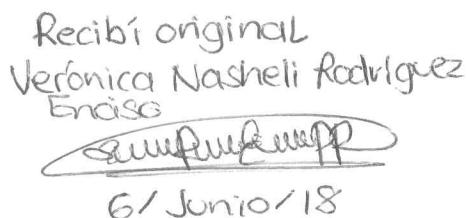 Recibí original
Verónica Nasheli Rodríguez
Enciso
6/Junio/18